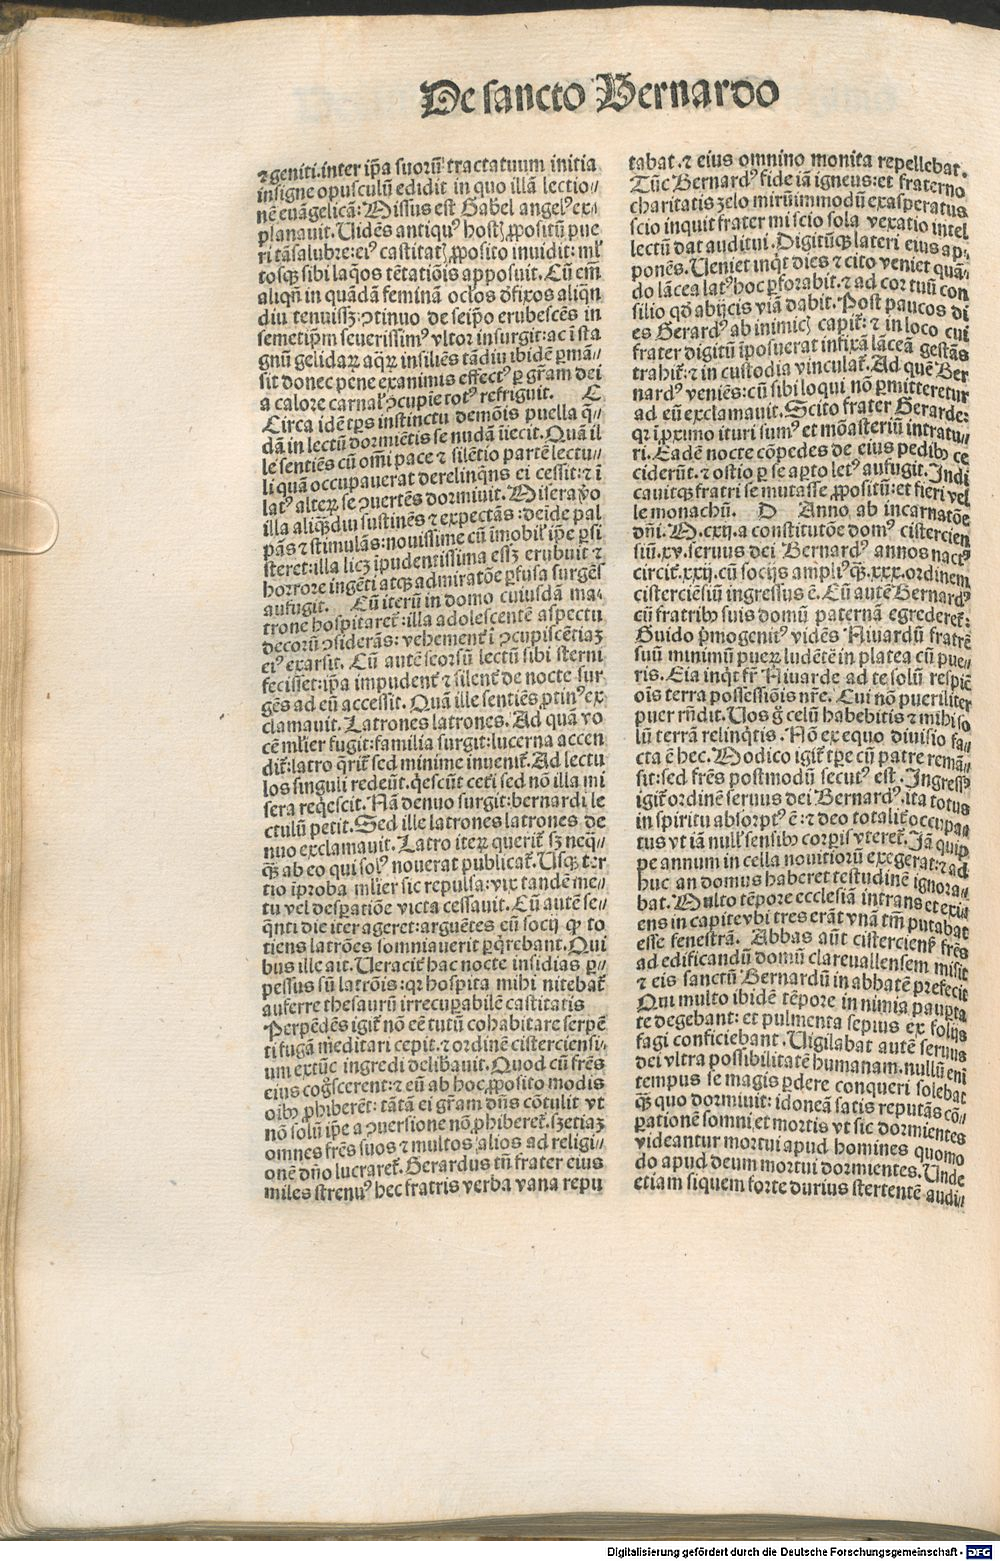 De sancto Bernardo
⁊ geniti. inter ip̃a suorũ tractatuum initia
insigne opusculũ edidit in quo illã lectio⸗
nẽ euãgelicã: Missus est Gabel angelꝰ ex⸗
planauit. Uidẽs antiquꝰ hostꝭ ꝓpositũ pue
ri tã salubre: eiꝰ castitatꝭ ꝓposito inuidit: ml̓
tosqꝫ sibi laq̃os tẽtatiõis apposuit. Cũ em̃
aliqñ in quãdã feminã ocl̓os d̓fixos aliqñ
diu tenuissꝫ: ꝯtinuo de seip̃o erubescẽs in
semetip̃m seuerissimꝰ vltor insurgit: ac ĩ sta
gnũ gelidaꝝ aq̃ꝝ insiliẽs tãdiu ibidẽ ꝑmã⸗
sit donec pene exanimis effectꝰ ꝑ gr̃am dei
a calore carnal̓ ꝯcupie totꝰ refriguit. C
Circa idẽ tp̃s instinctu demõis puella q̃⸗
dã in lectũ dormiẽtis se nudã iniecit. Quã il
le sentiẽs cũ om̃i pace ⁊ silẽtio partẽ lectu⸗
li quã occupauerat derelinq̃ns ei cessit: ⁊ ĩ
latꝰ alteꝝ se ꝯuertẽs dormiuit. Misera ꝟo
illa aliqꝫdiu sustinẽs ⁊ expectãs: deĩde pal
pãs ⁊ stimulãs: nouissime cũ ĩmobil̓ ip̃e ꝑsi
steret: illa licꝫ ĩpudentissima essꝫ erubuit ⁊
horrore ingẽti atqꝫ admiratõe ꝑfusa surgẽs
aufugit. Cũ iterũ in domo cuiusdã ma⸗
trone hospitaret̃: illa adolescentẽ aspectu
decorũ ꝯsiderãs: vehement̃ ĩ ꝯcupiscẽtiaꝫ
eiꝰ exarsit. Cũ autẽ seorsũ lectũ sibi sterni
fecisset: ip̃a impudent̃ ⁊ silent̃ de nocte sur
gẽs ad eũ accessit. Quã ille sentiẽs ꝓtinꝰ ex
clamauit. Latrones latrones. Ad quã vo
cẽ ml̓ier fugit: familia surgit: lucerna accen
dit̃: latro q̃rit̃ sed minime inuenit̃. Ad lectu
los singuli redeũt. q̓escũt cet̃i sed nõ illa mi
sera req̓escit. Nã denuo surgit: bernardi le
ctulũ petit. Sed ille latrones latrones de
nuo exclamauit. Latro iteꝝ querit̃ sꝫ neq̃⸗
qꝫ̃ ab eo qui solꝰ nouerat publicat̃. Usqꝫ ter
tio ĩproba ml̓ier sic repulsa: vix tandẽ me⸗
tu vel desꝑatiõe victa cessauit. Cũ autẽ se⸗
q̃nti die iter ageret: arguẽtes eũ socij ꝙ to
tiens latrões somniauerit ꝑq̓rebant. Qui
bus ille ait. Ueracit̃ hac nocte insidias ꝑ⸗
pessus sũ latrõis: qꝛ hospita mihi nitebat̃
auferre thesaurũ irrecuꝑabilẽ castitatis
Perpẽdẽs igit̃ nõ eẽ tutũ cohabitare serpẽ
ti fugã meditari cepit. ⁊ ordinẽ cisterciensi⸗
um extũc ingredi delib̃auit. Quod cũ fr̃es
eius cog̃scerent: ⁊ eũ ab hoc ꝓposito modis
oibꝰ ꝓhiberẽt: tãtã ei gr̃am dñs cõtulit vt
nõ solũ ip̃e a ꝯuersione nõ ꝓhiberet̃. sꝫ etiaꝫ
omnes fr̃es suos ⁊ multos alios ad religi⸗
onẽ dño lucraret̃. Gerardus tñ frater eius
miles strenuꝰ hec fratris verba vana repu
tabat. ⁊ eius omnino monita repellebat.
Tũc Bernardꝰ fide iã igneus: et fraterno
charitatis zelo mirũimmodũ exasperatus
scio inquit frater mi scio sola vexatio intel
lectũ dat auditui. Digitũqꝫ lateri eius ap⸗
ponẽs. Ueniet inq̓t dies ⁊ cito veniet quã⸗
do lãcea latꝰ hoc ꝑforabit. ⁊ ad cor tuũ con
silio qd̓ abijcis viã dabit. Post paucos di
es Gerardꝰ ab inimicꝭ capit̃: ⁊ in loco cui
frater digitũ ĩposuerat infixã lãceã gestãs
trahit̃: ⁊ in custodia vinculat̃. Ad quẽ Ber
nardꝰ veniẽs: cũ sibi loqui nõ ꝑmitteretur
ad eũ exclamauit. Scito frater Gerarde:
qꝛ ĩ ꝓximo ituri sumꝰ et mõasteriũ intratu⸗
ri. Eadẽ nocte cõpedes de eius pedibꝰ ce
ciderũt. ⁊ ostio ꝑ se aꝑto letꝰ aufugit. Indi
cauitqꝫ fratri se mutasse ꝓpositũ: et fieri vel
le monachũ. D Anno ab incarnatõe
dñi. M.cxij. a constitutõe domꝰ cistercien
siũ. xv. seruus dei Bernardꝰ annos nactꝰ
circit̃. xxij. cũ socijs ampliꝰ qꝫ̃. xxx. ordinem
cisterciẽsiũ ingressus ẽ. Cũ autẽ Bernardꝰ
cũ fratribꝰ suis domũ paternã egrederet̃:
Guido p̓mogenitꝰ vidẽs Niuardũ fratrẽ
suũ minimũ pueꝝ ludẽtẽ in platea cũ pue⸗
ris. Eia inq̓t fr̃ Niuarde ad te solũ respiẽ
ois terra possessiõis nr̃e. Cui nõ pueriliter
puer rñdit. Uos g̃ celũ habebitis ⁊ mihi so
lũ terrã relinq̓tis. Nõ ex equo diuisio fa⸗
cta ẽ hec. Modico igit̃ tp̃e cũ patre remã⸗
sit: sed fr̃es postmodũ secutꝰ est. Ingressꝰ
igit̃ ordinẽ seruus dei Bernardꝰ. ita totus
in spiritu absorptꝰ ẽ: ⁊ deo totalit̃ occupa
tus vt iã null̓ sensibꝰ corꝑis vteret̃. Jã quip
pe annum in cella nouitiorũ exegerat: ⁊ ad
huc an domus haberet testudinẽ ignora⸗
bat. Multo tẽpore ecclesiã intrans et exi⸗
ens in capite vbi tres erãt vnã tm̃ putabat
esse fenestrã. Abbas aũt cistercienẽ fr̃es
ad edificandũ domũ clareuallensem misit
⁊ eis sanctũ Bernardũ in abbatẽ prefecit
Qui multo ibidẽ tẽpore in nimia pauꝑta
te degebant: et pulmenta sepius ex folijs
fagi conficiebant. Uigilabat autẽ seruus
dei vltra possibilitatẽ humanam. nullũ eni
tempus se magis ꝑdere conqueri solebat
qꝫ̃ quo dormiuit: idoneã satis reputãs cõ⸗
ꝑationẽ somni et mortis vt sic dormientes
videantur mortui apud homines quomo
do apud deum mortui dormientes. Unde
etiam siquem forte durius stertentẽ audi⸗
Digitalisierung gefördert durch die Deutsche Forschungsgemeinschaft - DFG